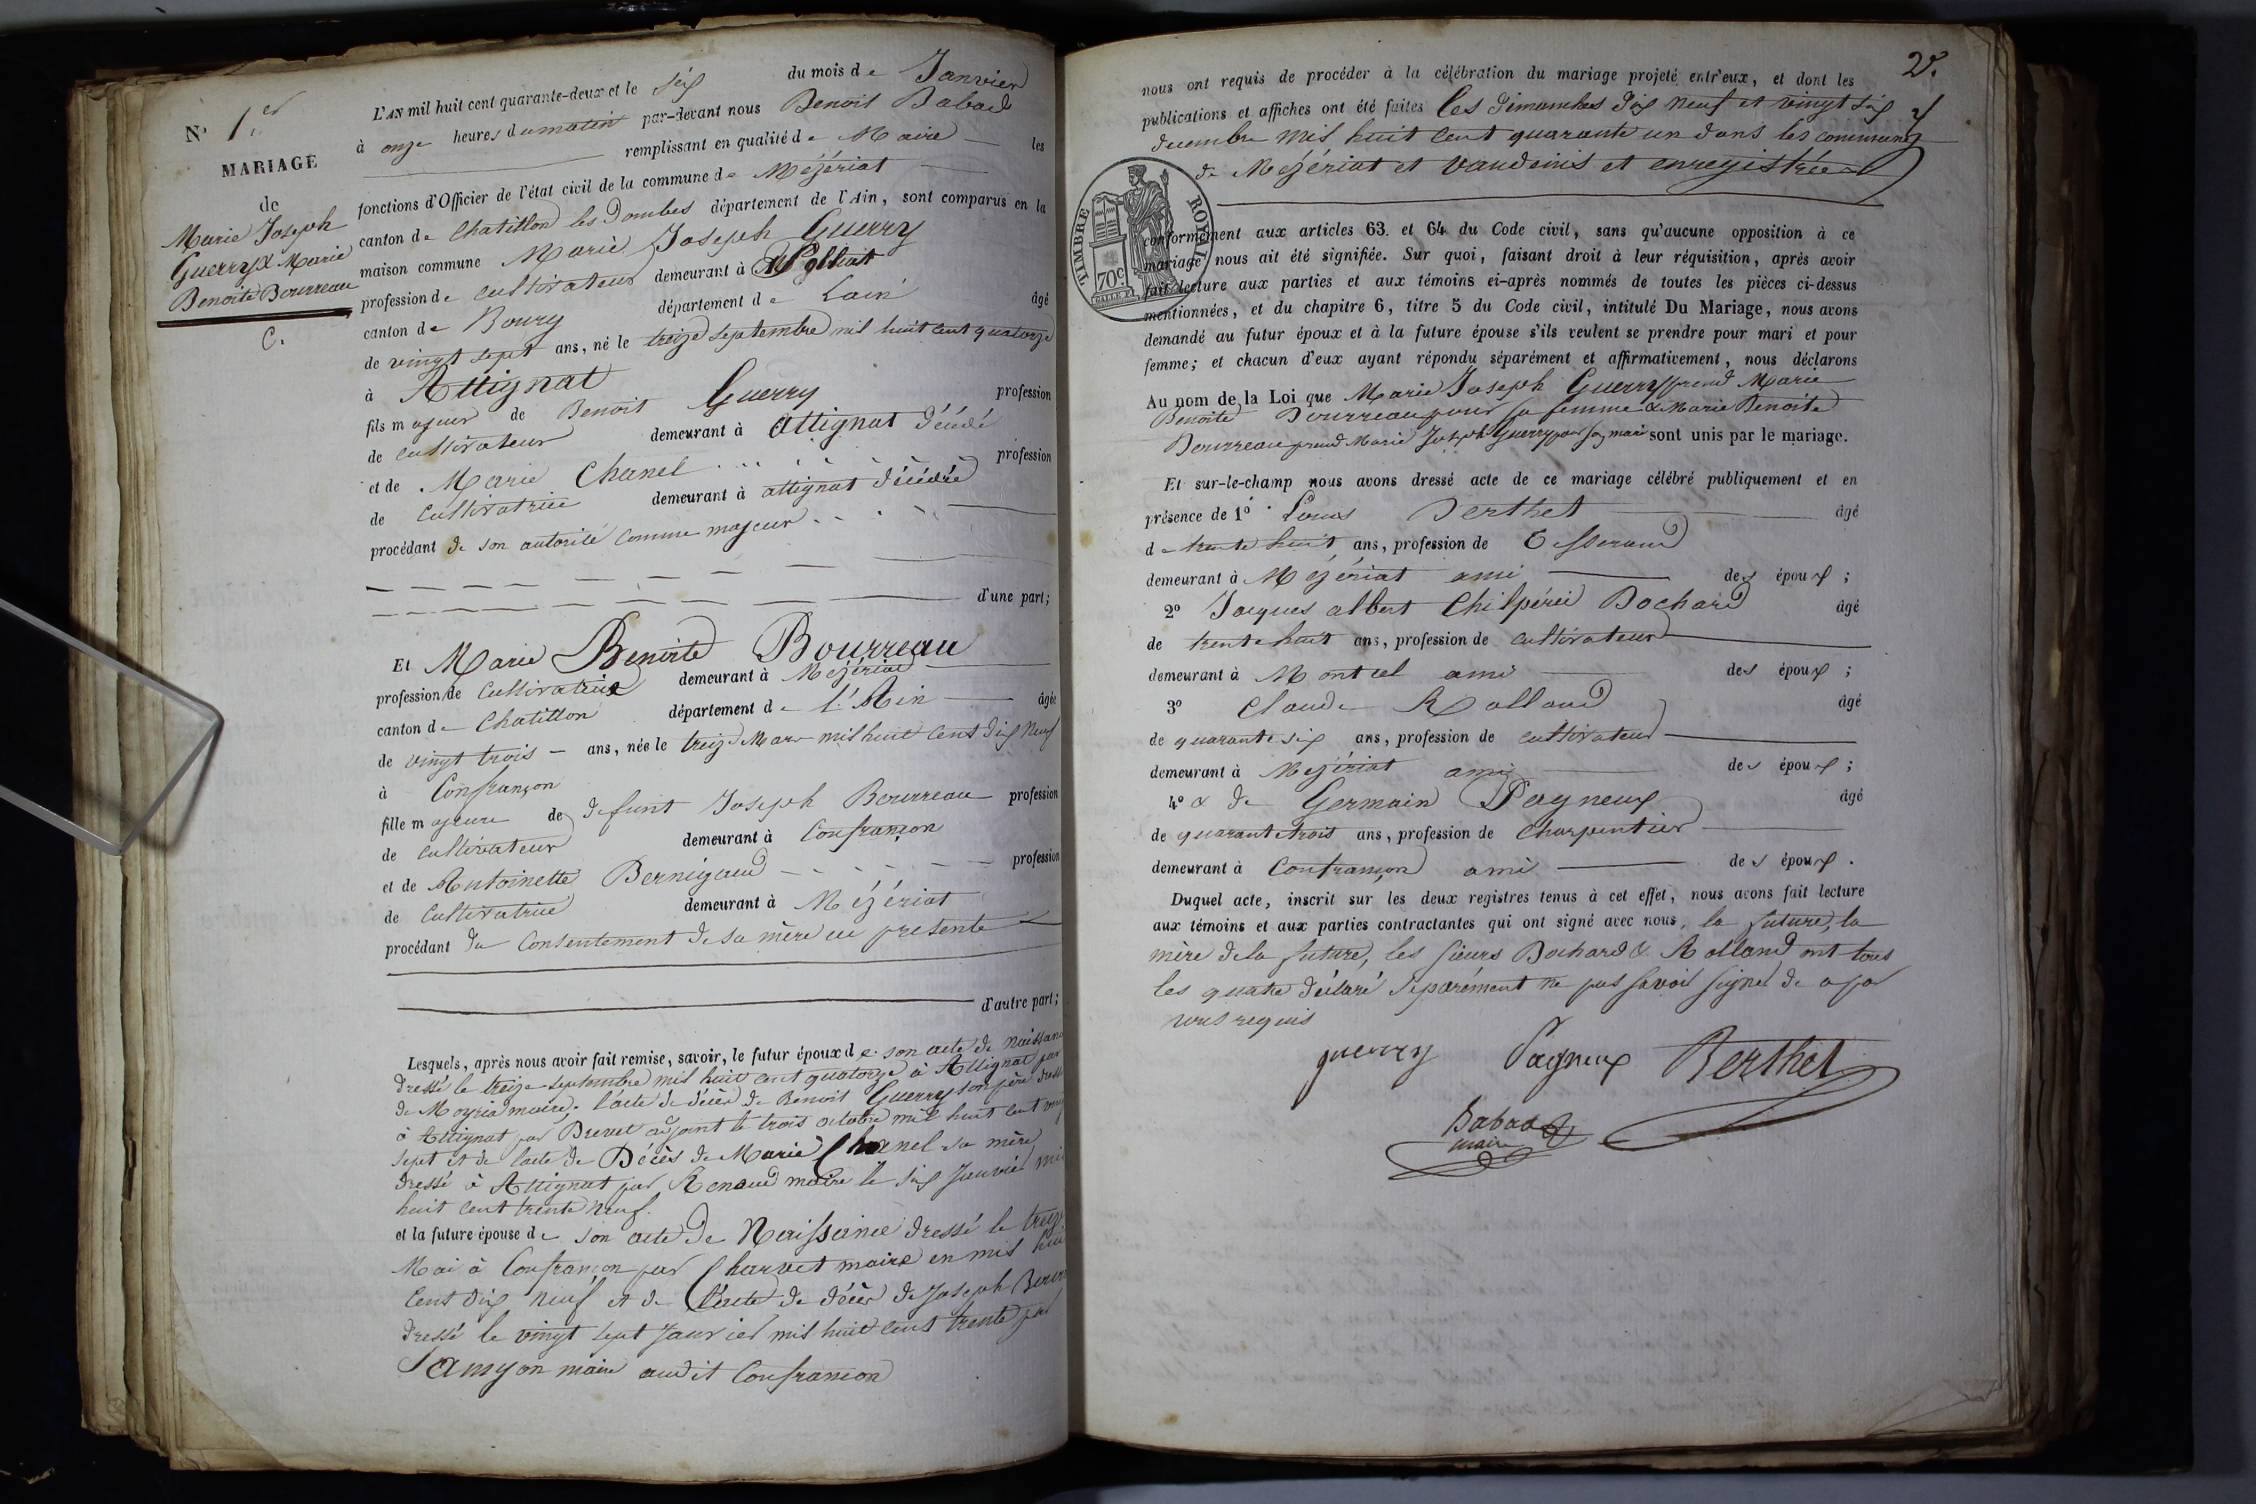 N° 1er
MARIAGE
de
Marie Joseph
Guerry & Marie
Benoite Bourreau
C.
L'AN mil huit cent quarante-deux et le six du mois de Janvier
à onze heures du matin par-devant nous Benoit Babad
remplissant en qualité de Maire les
fonctions d'Officier de l'état civil de la commune de Mézériat
canton de Chatillon les Dombes département de l'Ain, sont comparus en la
maison commune Marie Joseph Guerry
profession de cultivateur demeurant à Polliat
canton de Bourg département de Lain âgé
de vingt sept ans, né le treize septembre mil huit cent quatorze
à Attignat
fils majeur de Benoit Guerry profession
de cultivateur demeurant à attignat décédé
et de Marie Chanel profession
de Cultivatrice demeurant à attignat décédée
procédant de son autorité comme majeur
d'une part;
Et Marie Benoite Bourreau
profession de Cultivatrice demeurant à Mézériat
canton de Chatillon département de l'Ain âgée
de vingt trois ans, née le treize Mars mil huit cent dix neuf
à Confrançon
fille majeure de defunt Joseph Bourreau profession
de cultivateur demeurant à Confrançon
et de Antoinette Bernigaud profession
de Cultivatrice demeurant à Mézériat
procédant du Consentement de sa mère ici presente
d'autre part;
Lesquels, après nous avoir fait remise, savoir, le futur époux de son acte de naissance
dressé le treize septembre mil huit cent quatorze à Attignat par
de Moyria maire. l'acte de décès de Benoit Guerry son père dressé
à Attignat par Brevet adjoint le trois octobre mil huit cent vingt
sept et de l'acte de Décès de Marie Chanel sa mère
dressé à Attignat par Renaud maire le six Janvier mil
huit cent trente neuf.
et la future épouse de son acte de Naissance dressé le treize
Mai à Confrançon par Charvet maire en mil huit
Cent dix neuf et de l'acte de décès de Joseph Bourreau
dressé le vingt sept Janvier mil huit cent trente par
maire audit Confrançon
2e.
nous ont requis de procéder à la célébration du mariage projeté entr'eux, et dont les
publications et affiches ont été faites les dimanches dix neuf et vingt six
decembre mil huit cent quarante un dans les communes
de Mézériat et Vandeins et enregistrées
TIMBRE ROYAL
70c.
conformément aux articles 63. et 64 du Code civil, sans qu'aucune opposition à ce
mariage nous ait été signifiée. Sur quoi, faisant droit à leur réquisition, après avoir
fait lecture aux parties et aux témoins ci-après nommés de toutes les pièces ci-dessus
mentionnées, et du chapitre 6, titre 5 du Code civil, intitulé Du Mariage, nous avons
demandé au futur époux et à la future épouse s'ils veulent se prendre pour mari et pour
femme; et chacun d'eux ayant répondu séparément et affirmativement, nous déclarons
Au nom de la Loi que Marie Joseph Guerry prend Marie
Benoite Bourreau pour sa femme & Marie Benoite
Bourreau prend Marie Joseph Guerry pour son mari sont unis par le mariage.
Et sur-le-champ nous avons dressé acte de ce mariage célébré publiquement et en
présence de 1° Louis Berthet âgé
de trente huit ans, profession de Tisserand
demeurant à Mézériat ami des époux;
2° Jacques albert Chilpéric Bochard âgé
de trente huit ans, profession de cultivateur
demeurant à Montcel ami des époux;
3° Claude Rolland âgé
de quarante six ans, profession de cultivateur
demeurant à Mézériat ami des époux;
4° & de Germain Pagneux âgé
de quarante trois ans, profession de Charpentier
demeurant à Confrançon ami des époux.
Duquel acte, inscrit sur les deux registres tenus à cet effet, nous avons fait lecture
aux témoins et aux parties contractantes qui ont signé avec nous, la future, la
mère de la future, les sieurs Bochard & Rolland ont tous
les quatre déclaré séparément ne pas savoir signer de ce par
nous requis
guerry Pagneux Berthet
Babad
maire